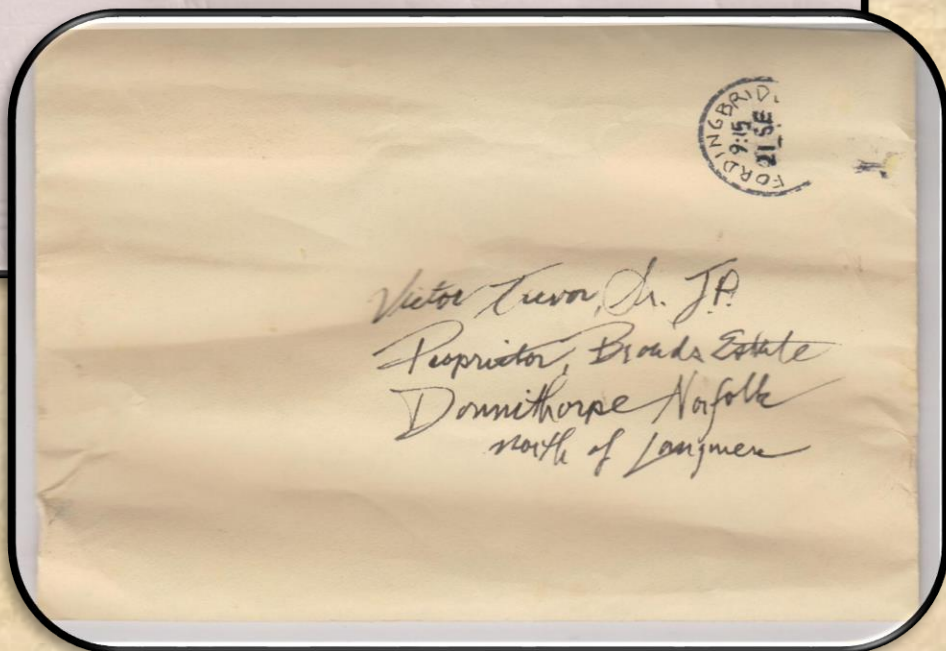 FORDINGBRID
9:15
21 SE
Victor Trevor, Sr. J.P.
Proprietor, Broads Estate
Donnithorpe Norfolk
north of Langmere